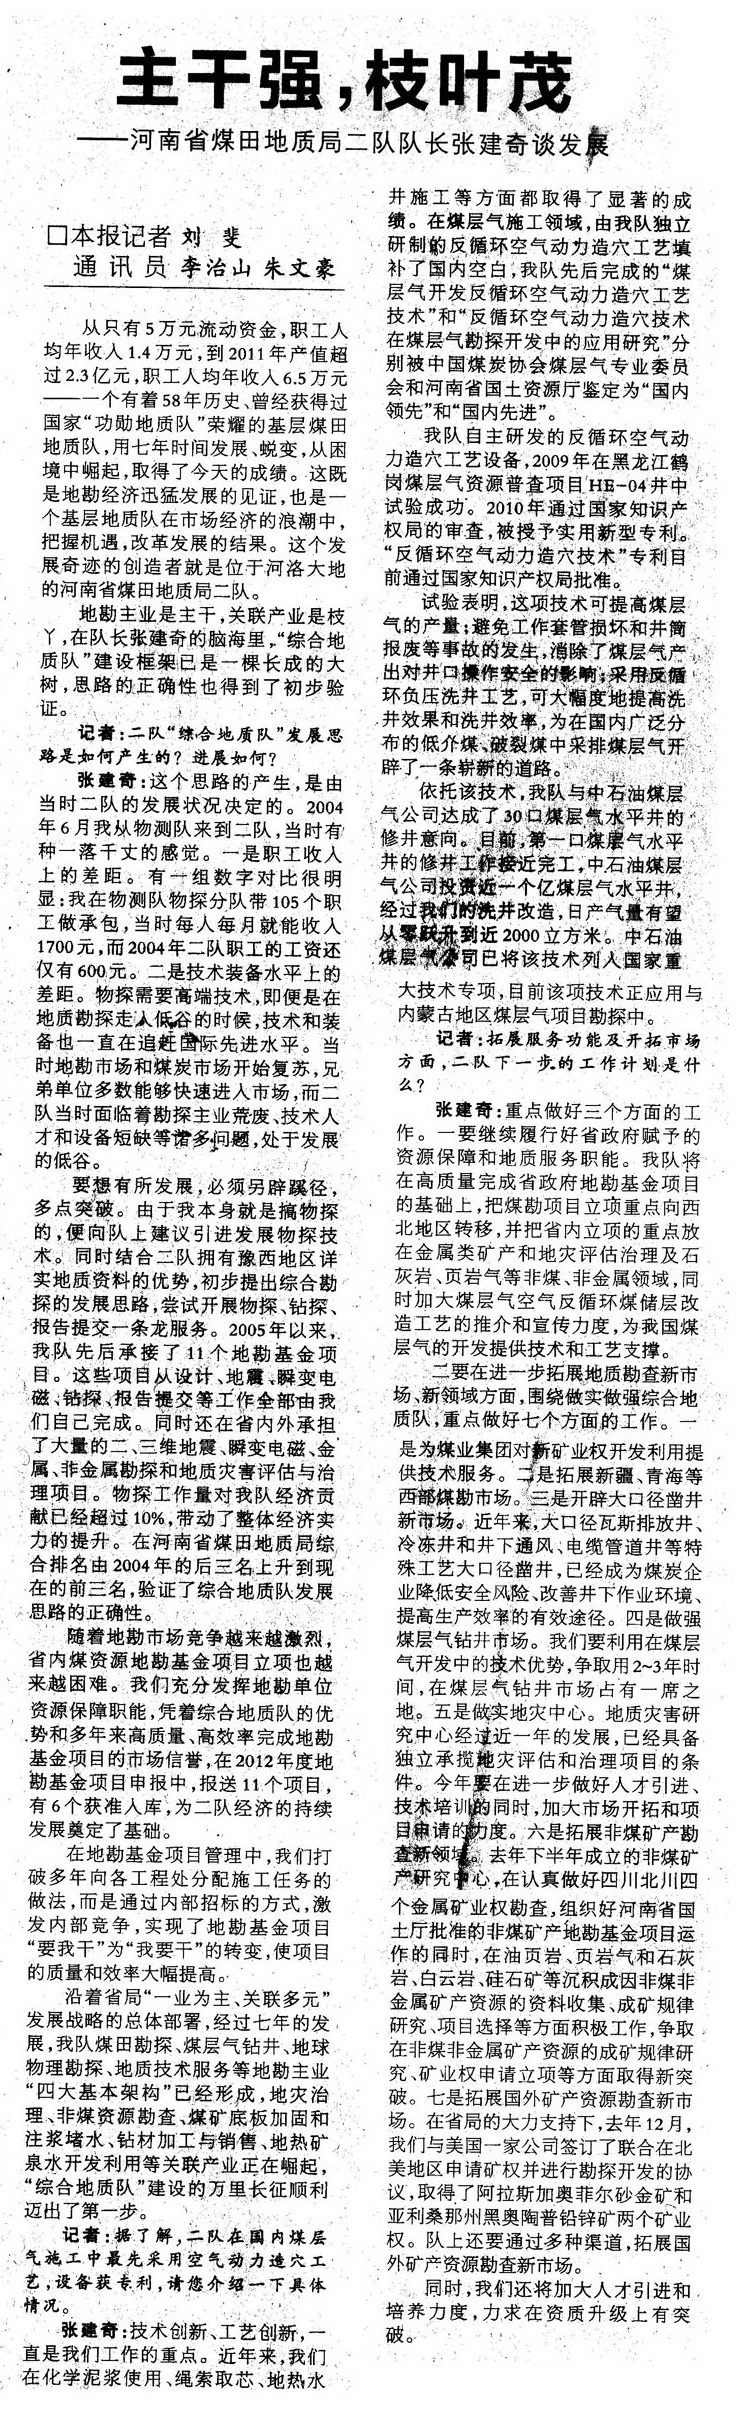 主干强，枝叶茂
——河南省煤田地质局二队队长张建奇谈发展
□本报记者 刘 斐
通 讯 员 李治山 朱文豪
从只有5万元流动资金，职工人
均年收入1.4万元，到2011年产值超
过2.3亿元，职工人均年收入6.5万元
——一个有着58年历史、曾经获得过
国家“功勋地质队”荣耀的基层煤田
地质队，用七年时间发展、蜕变，从困
境中崛起，取得了今天的成绩。这既
是地勘经济迅猛发展的见证，也是一
个基层地质队在市场经济的浪潮中，
把握机遇，改革发展的结果。这个发
展奇迹的创造者就是位于河洛大地
的河南省煤田地质局二队。
地勘主业是主干，关联产业是枝
丫，在队长张建奇的脑海里，“综合地
质队”建设框架已是一棵长成的大
树，思路的正确性也得到了初步验
证。
记者：二队“综合地质队”发展思
路是如何产生的？进展如何？
张建奇：这个思路的产生，是由
当时二队的发展状况决定的。2004
年6月我从物测队来到二队，当时有
种一落千丈的感觉。一是职工收入
上的差距。有一组数字对比很明
显：我在物测队物探分队带105个职
工做承包，当时每人每月就能收入
1700元，而2004年二队职工的工资还
仅有600元。二是技术装备水平上的
差距。物探需要高端技术，即便是在
地质勘探走入低谷的时候，技术和装
备也一直在追赶国际先进水平。当
时地勘市场和煤炭市场开始复苏，兄
弟单位多数能够快速进入市场，而二
队当时面临着勘探主业荒废、技术人
才和设备短缺等诸多问题，处于发展
的低谷。
要想有所发展，必须另辟蹊径，
多点突破。由于我本身就是搞物探
的，便向队上建议引进发展物探技
术。同时结合二队拥有豫西地区详
实地质资料的优势，初步提出综合勘
探的发展思路，尝试开展物探、钻探、
报告提交一条龙服务。2005年以来，
我队先后承接了11个地勘基金项
目。这些项目从设计、地震、瞬变电
磁、钻探、报告提交等工作全部由我
们自己完成。同时还在省内外承担
了大量的二、三维地震、瞬变电磁、金
属、非金属勘探和地质灾害评估与治
理项目。物探工作量对我队经济贡
献已经超过10%，带动了整体经济实
力的提升。在河南省煤田地质局综
合排名由2004年的后三名上升到现
在的前三名，验证了综合地质队发展
思路的正确性。
随着地勘市场竞争越来越激烈，
省内煤资源地勘基金项目立项也越
来越困难。我们充分发挥地勘单位
资源保障职能，凭着综合地质队的优
势和多年来高质量、高效率完成地勘
基金项目的市场信誉，在2012年度地
勘基金项目申报中，报送11个项目，
有6个获准入库，为二队经济的持续
发展奠定了基础。
在地勘基金项目管理中，我们打
破多年向各工程处分配施工任务的
做法，而是通过内部招标的方式，激
发内部竞争，实现了地勘基金项目
“要我干”为“我要干”的转变，使项目
的质量和效率大幅提高。
沿着省局“一业为主、关联多元”
发展战略的总体部署，经过七年的发
展，我队煤田勘探、煤层气钻井、地球
物理勘探、地质技术服务等地勘主业
“四大基本架构”已经形成，地灾治
理、非煤资源勘查、煤矿底板加固和
注浆堵水、钻材加工与销售、地热矿
泉水开发利用等关联产业正在崛起，
“综合地质队”建设的万里长征顺利
迈出了第一步。
记者：据了解，二队在国内煤层
气施工中最先采用空气动力造穴工
艺，设备获专利，请您介绍一下具体
情况。
张建奇：技术创新、工艺创新，一
直是我们工作的重点。近年来，我们
在化学泥浆使用、绳索取芯、地热水
井施工等方面都取得了显著的成
绩。在煤层气施工领域，由我队独立
研制的反循环空气动力造穴工艺填
补了国内空白，我队先后完成的“煤
层气开发反循环空气动力造穴工艺
技术”和“反循环空气动力造穴技术
在煤层气勘探开发中的应用研究”分
别被中国煤炭协会煤层气专业委员
会和河南省国土资源厅鉴定为“国内
领先”和“国内先进”。
我队自主研发的反循环空气动
力造穴工艺设备，2009年在黑龙江鹤
岗煤层气资源普查项目HE-04井中
试验成功。2010年通过国家知识产
权局的审查，被授予实用新型专利。
“反循环空气动力造穴技术”专利目
前通过国家知识产权局批准。
试验表明，这项技术可提高煤层
气的产量；避免工作套管损坏和井筒
报废等事故的发生，消除了煤层气产
出对井口操作安全的影响；采用反循
环负压洗井工艺，可大幅度地提高洗
井效果和洗井效率，为在国内广泛分
布的低介煤、破裂煤中采排煤层气开
辟了一条崭新的道路。
依托该技术，我队与中石油煤层
气公司达成了30口煤层气水平井的
修井意向。目前，第一口煤层气水平
井的修井工作接近完工，中石油煤层
气公司投资近一个亿煤层气水平井，
经过我们的洗井改造，日产气量有望
从零跃升到近2000立方米。中石油
煤层气公司已将该技术列入国家重
大技术专项，目前该项技术正应用与
内蒙古地区煤层气项目勘探中。
记者：拓展服务功能及开拓市场
方面，二队下一步的工作计划是什
么？
张建奇：重点做好三个方面的工
作。一要继续履行好省政府赋予的
资源保障和地质服务职能。我队将
在高质量完成省政府地勘基金项目
的基础上，把煤勘项目立项重点向西
北地区转移，并把省内立项的重点放
在金属类矿产和地灾评估治理及石
灰岩、页岩气等非煤、非金属领域，同
时加大煤层气空气反循环煤储层改
造工艺的推介和宣传力度，为我国煤
层气的开发提供技术和工艺支撑。
二要在进一步拓展地质勘查新市
场、新领域方面，围绕做实做强综合地
质队，重点做好七个方面的工作。一
是为煤业集团对新矿业权开发利用提
供技术服务。二是拓展新疆、青海等
西部煤勘市场。三是开辟大口径凿井
新市场。近年来，大口径瓦斯排放井、
冷冻井和井下通风、电缆管道井等特
殊工艺大口径凿井，已经成为煤炭企
业降低安全风险、改善井下作业环境、
提高生产效率的有效途径。四是做强
煤层气钻井市场。我们要利用在煤层
气开发中的技术优势，争取用2~3年时
间，在煤层气钻井市场占有一席之
地。五是做实地灾中心。地质灾害研
究中心经过近一年的发展，已经具备
独立承揽地灾评估和治理项目的条
件。今年要在进一步做好人才引进、
技术培训的同时，加大市场开拓和项
目申请的力度。六是拓展非煤矿产勘
查新领域。去年下半年成立的非煤矿
产研究中心，在认真做好四川北川四
个金属矿业权勘查，组织好河南省国
土厅批准的非煤矿产地勘基金项目运
作的同时，在油页岩、页岩气和石灰
岩、白云岩、硅石矿等沉积成因非煤非
金属矿产资源的资料收集、成矿规律
研究、项目选择等方面积极工作，争取
在非煤非金属矿产资源的成矿规律研
究、矿业权申请立项等方面取得新突
破。七是拓展国外矿产资源勘查新市
场。在省局的大力支持下，去年12月，
我们与美国一家公司签订了联合在北
美地区申请矿权并进行勘探开发的协
议，取得了阿拉斯加奥菲尔砂金矿和
亚利桑那州黑奥陶普铅锌矿两个矿业
权。队上还要通过多种渠道，拓展国
外矿产资源勘查新市场。
同时，我们还将加大人才引进和
培养力度，力求在资质升级上有突
破。